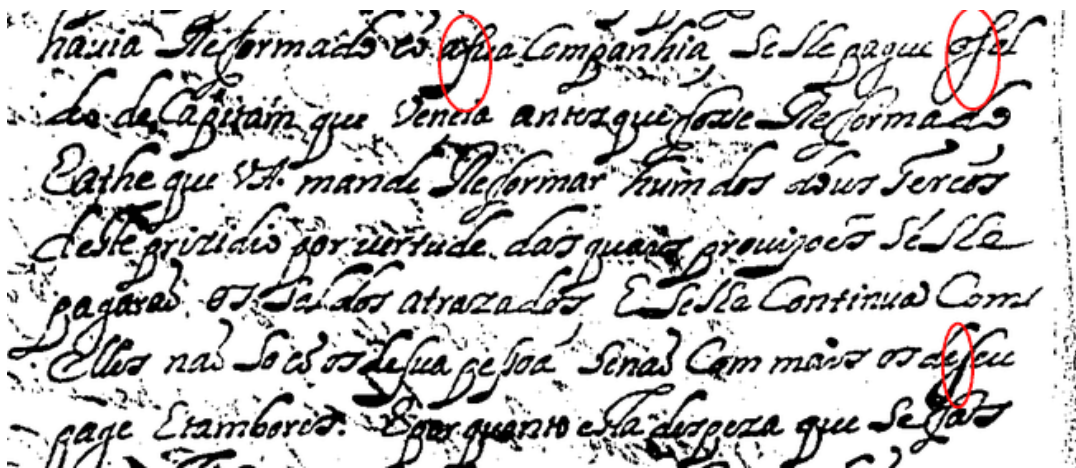 havia Reformado cõ a sua Companhia, Se lle pague o sol
do de Capitam que Vencia antes que fosse Reformado
E athe que V.A. mande Reformar hum dos dous Terços
deste prizidio por vertude das quaes provizoẽs Se lle
pagaraõ os Soldos atrazados, E Se lle Continuaõ Com
Elles naõ So cõ os de sua pessoa Senaõ Com mais os de seu
page E tambores. E por quanto esta despeza que Se faz